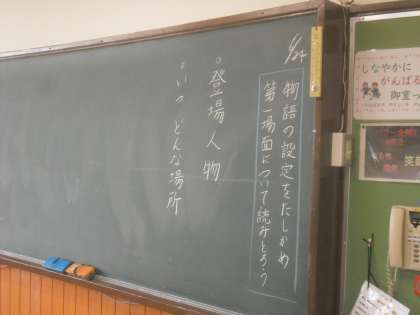 9/24
物語の設定をたしかめ
第一場面について読みとろう
◦登場人物
◦いつ どんな場所
しなやかに
がんばる
御室っ